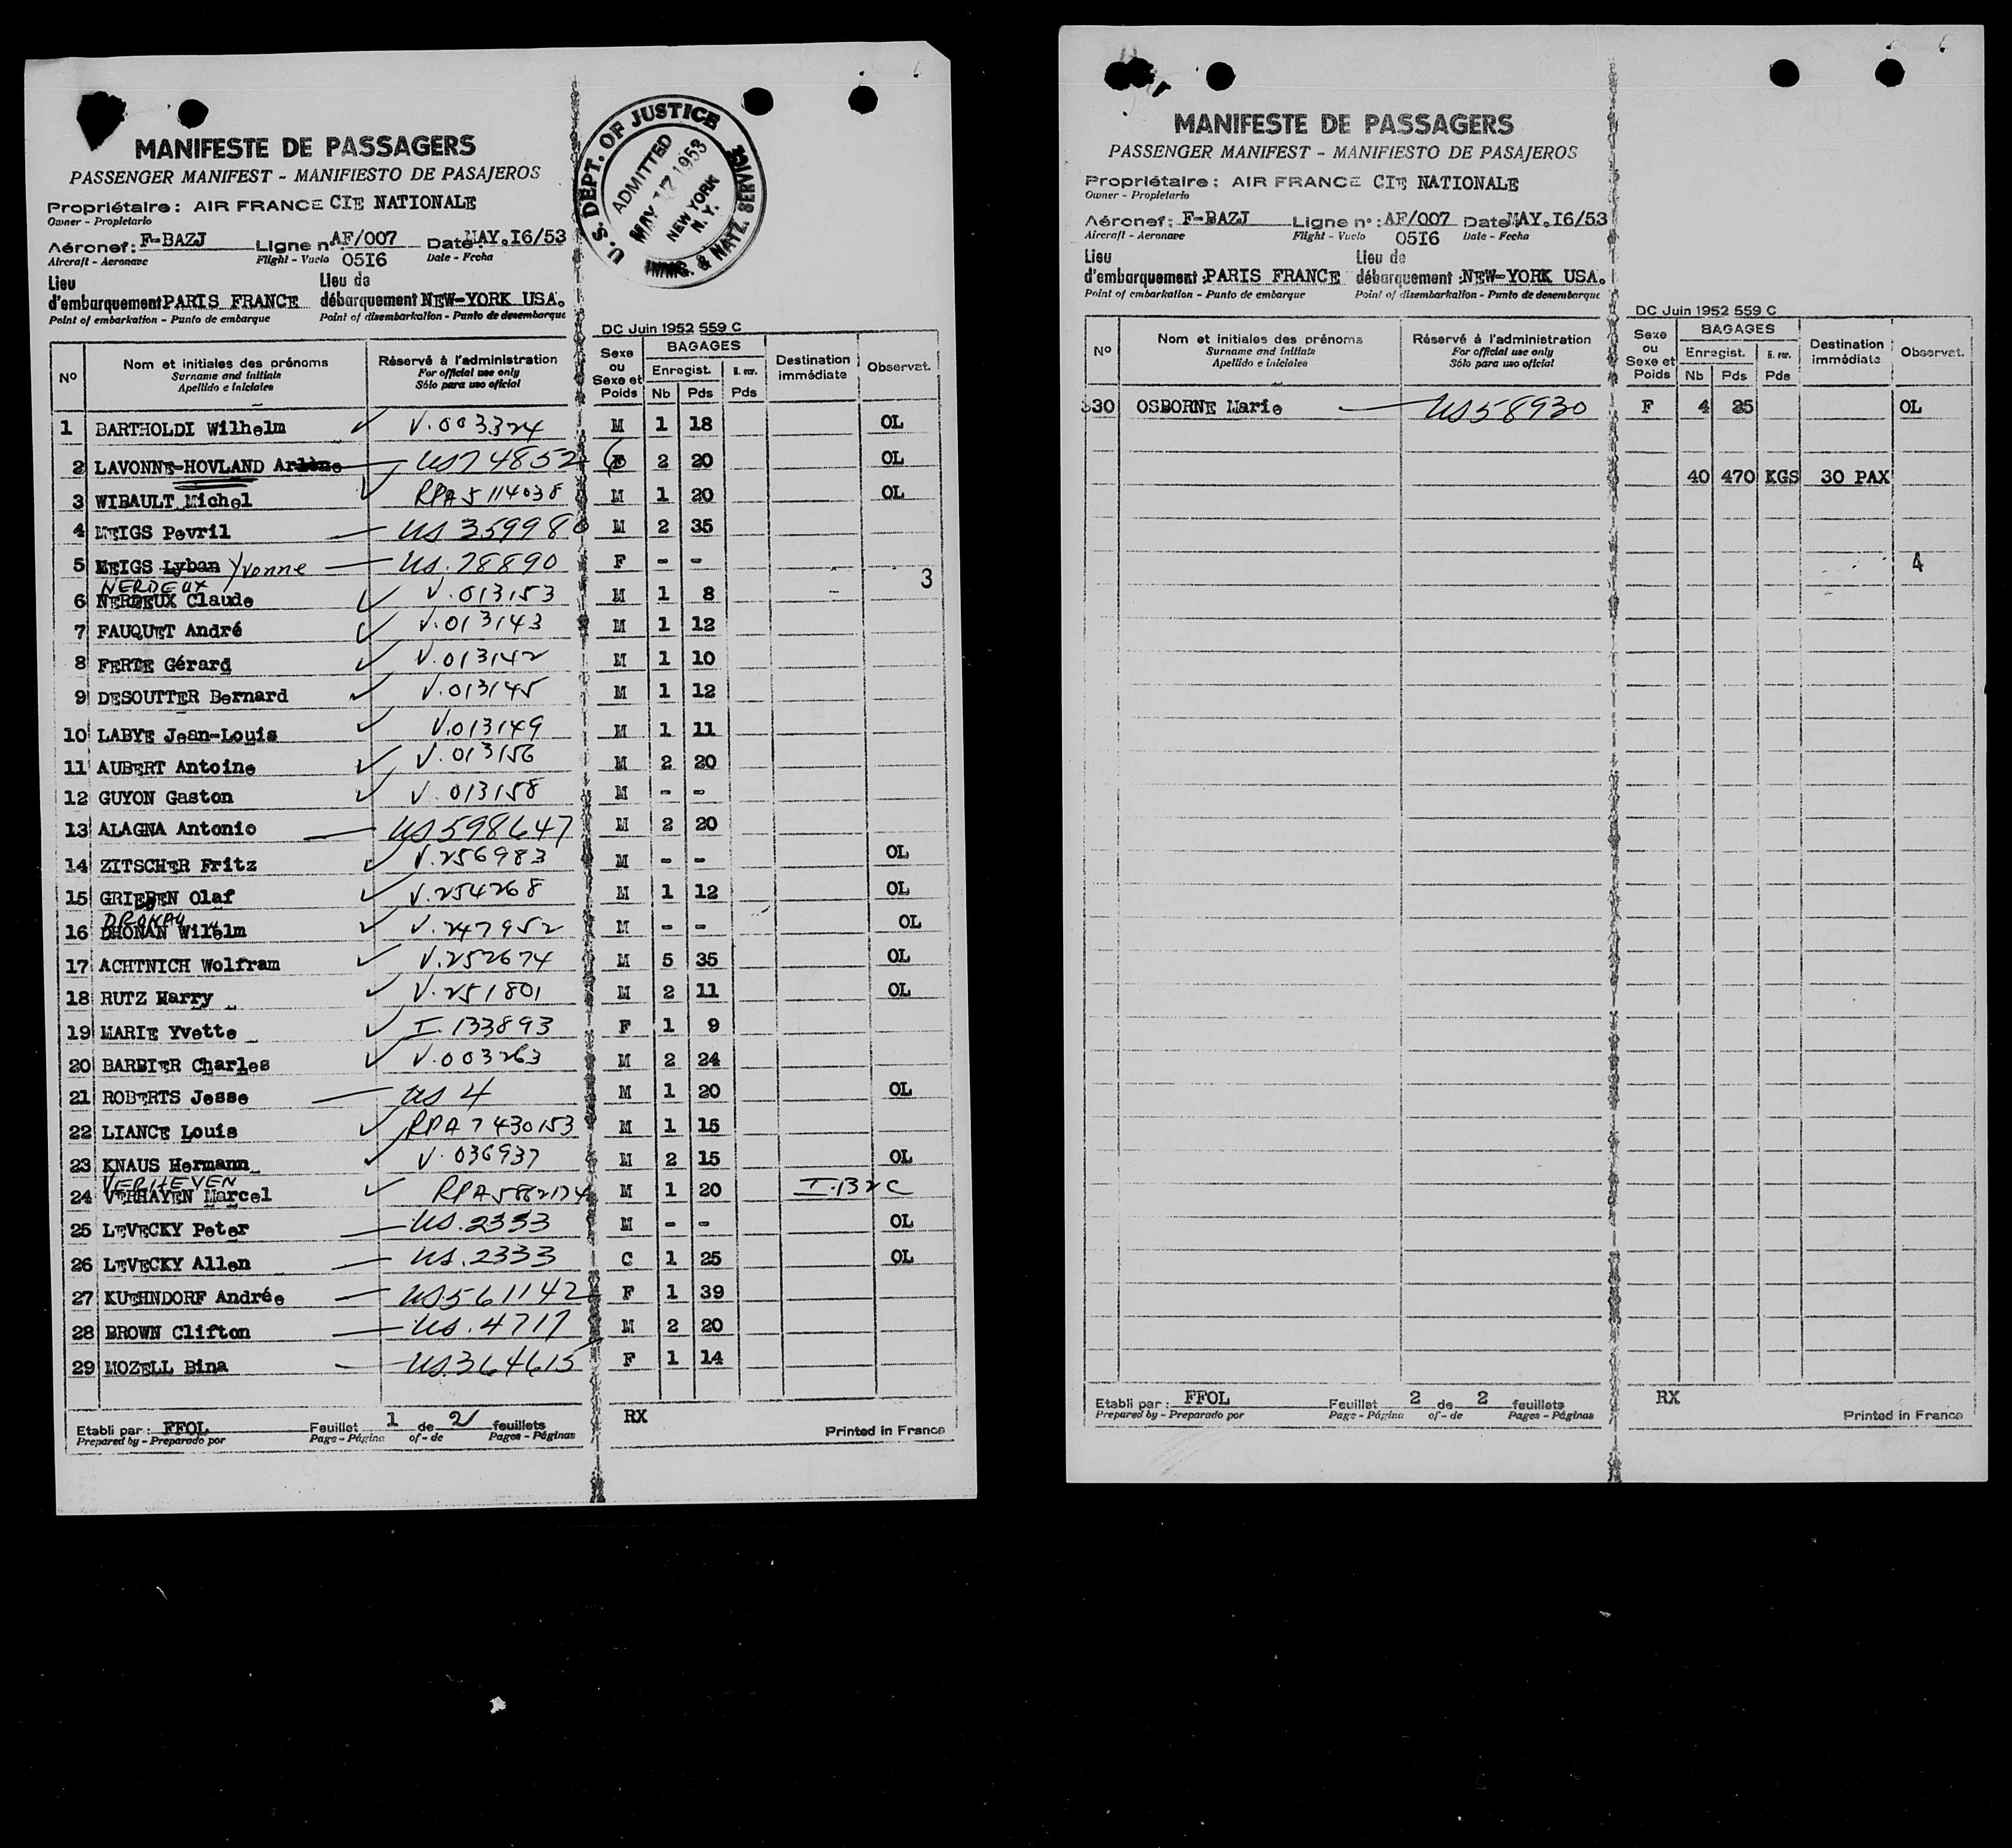 MANIFESTE DE PASSAGERS
PASSENGER MANIFEST - MANIFIESTO DE PASAJEROS
Propriétaire : AIR FRANCE CIE NATIONALE
Owner - Propietario
Aéronef : F-BAZJ Ligne n° AF/007 Date MAY.I6/53
Aircraft - Aeronave Flight - Vuelo 05I6 Date - Fecha
Lieu d'embarquement PARIS FRANCE Lieu de débarquement NEW-YORK USA.
Point of embarkation - Punto de embarque Point of disembarkation - Punto de desembarque
U. S. DEPT. OF JUSTICE
ADMITTED
MAY 17 1953
NEW YORK
N. Y.
IMMG. & NATZ. SERVICE
DC Juin 1952 559 C
N° Nom et initiales des prénoms Réservé à l'administration Sexe ou Sexe et Poids BAGAGES Destination immédiate Observat.
Surname and initials For official use only Enregist.
Apellido e iniciales Sólo para uso oficial Nb Pds Pds
1 BARTHOLDI Wilhelm V.003324 M 1 18 OL
2 LAVONNE-HOVLAND Arlène US 74852 F 2 20 OL
3 WIBAULT Michel RPA 5114038 M 1 20 OL
4 MEIGS Pevril US 359980 M 2 35
5 MEIGS Lyban Yvonne US.78890 F - -
3
NERDEUX
6 NERDEUX Claude V.013153 M 1 8
7 FAUQUET André V.013143 M 1 12
8 FERTE Gérard V.013142 M 1 10
9 DESOUTTER Bernard V.013145 M 1 12
10 LABYE Jean-Louis V.013149 M 1 11
11 AUBERT Antoine V.013156 M 2 20
12 GUYON Gaston V.013158 M - -
13 ALAGNA Antonio US 598647 M 2 20
14 ZITSCHER Fritz V.256983 M - - OL
15 GRIEBEN Olaf V.254268 M 1 12 OL
16 DHONAN Wilélm V.247952 M - - OL
17 ACHTNICH Wolfram V.252674 M 5 35 OL
18 RUTZ Harry V.251801 M 2 11 OL
19 MARIE Yvette I.133893 F 1 9
20 BARBIER Charles V.003263 M 2 24
21 ROBERTS Jesse US 4 M 1 20 OL
22 LIANCE Louis RPA 7430153 M 1 15
23 KNAUS Hermann V.036937 M 2 15 OL
VERHEYEN
24 VERHAYEN Marcel RPA 5882174 M 1 20 I-132C
25 LEVECKY Peter US.2333 M - - OL
26 LEVECKY Allen US.2333 C 1 25 OL
27 KUEHNDORF Andrée US 561142 F 1 39
28 BROWN Clifton US.4717 M 2 20
29 MOZELL Bina US.364615 F 1 14
Etabli par : FFOL Feuillet 1 de 2 feuillets RX
Prepared by - Preparado por Page - Página of - de Pages - Páginas Printed in France
MANIFESTE DE PASSAGERS
PASSENGER MANIFEST - MANIFIESTO DE PASAJEROS
Propriétaire : AIR FRANCE CIE NATIONALE
Owner - Propietario
Aéronef : F-BAZJ Ligne n° : AF/007 Date MAY.I6/53
Aircraft - Aeronave Flight - Vuelo 05I6 Date - Fecha
Lieu d'embarquement : PARIS FRANCE Lieu de débarquement : NEW-YORK USA.
Point of embarkation - Punto de embarque Point of disembarkation - Punto de desembarque
DC Juin 1952 559 C
N° Nom et initiales des prénoms Réservé à l'administration Sexe ou Sexe et Poids BAGAGES Destination immédiate Observat.
Surname and initials For official use only Enregist.
Apellido e iniciales Sólo para uso oficial Nb Pds Pds
30 OSBORNE Marie US 58930 F 4 25 OL
40 470 KGS 30 PAX
4
Etabli par : FFOL Feuillet 2 de 2 feuillets RX
Prepared by - Preparado por Page - Página of - de Pages - Páginas Printed in France